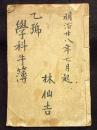 明治廿八年七月起
乙號
學科手簿
林仙吉